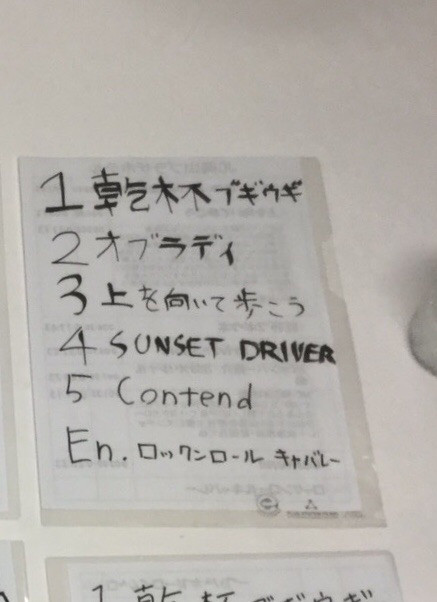 1 乾杯ブギウギ
2 オブラディ
3 上を向いて歩こう
4 SUNSET DRIVER
5 Contend
En. ロックンロール キャバレー
1 乾杯ブギウギ